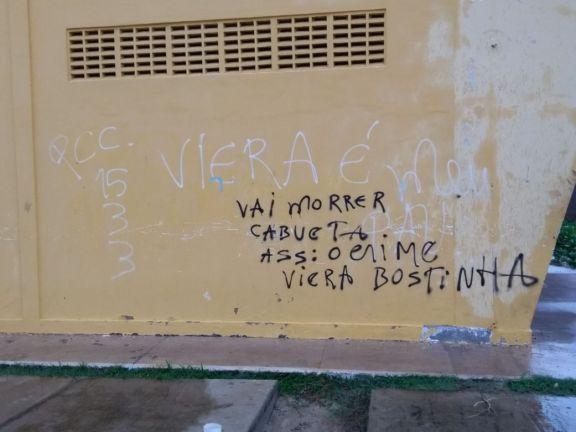 PCC. VIERA É meu
15 PAI
3
3
VAI MORRER
CABUETA
ASS: O CRIME
VIERA BOSTINHA